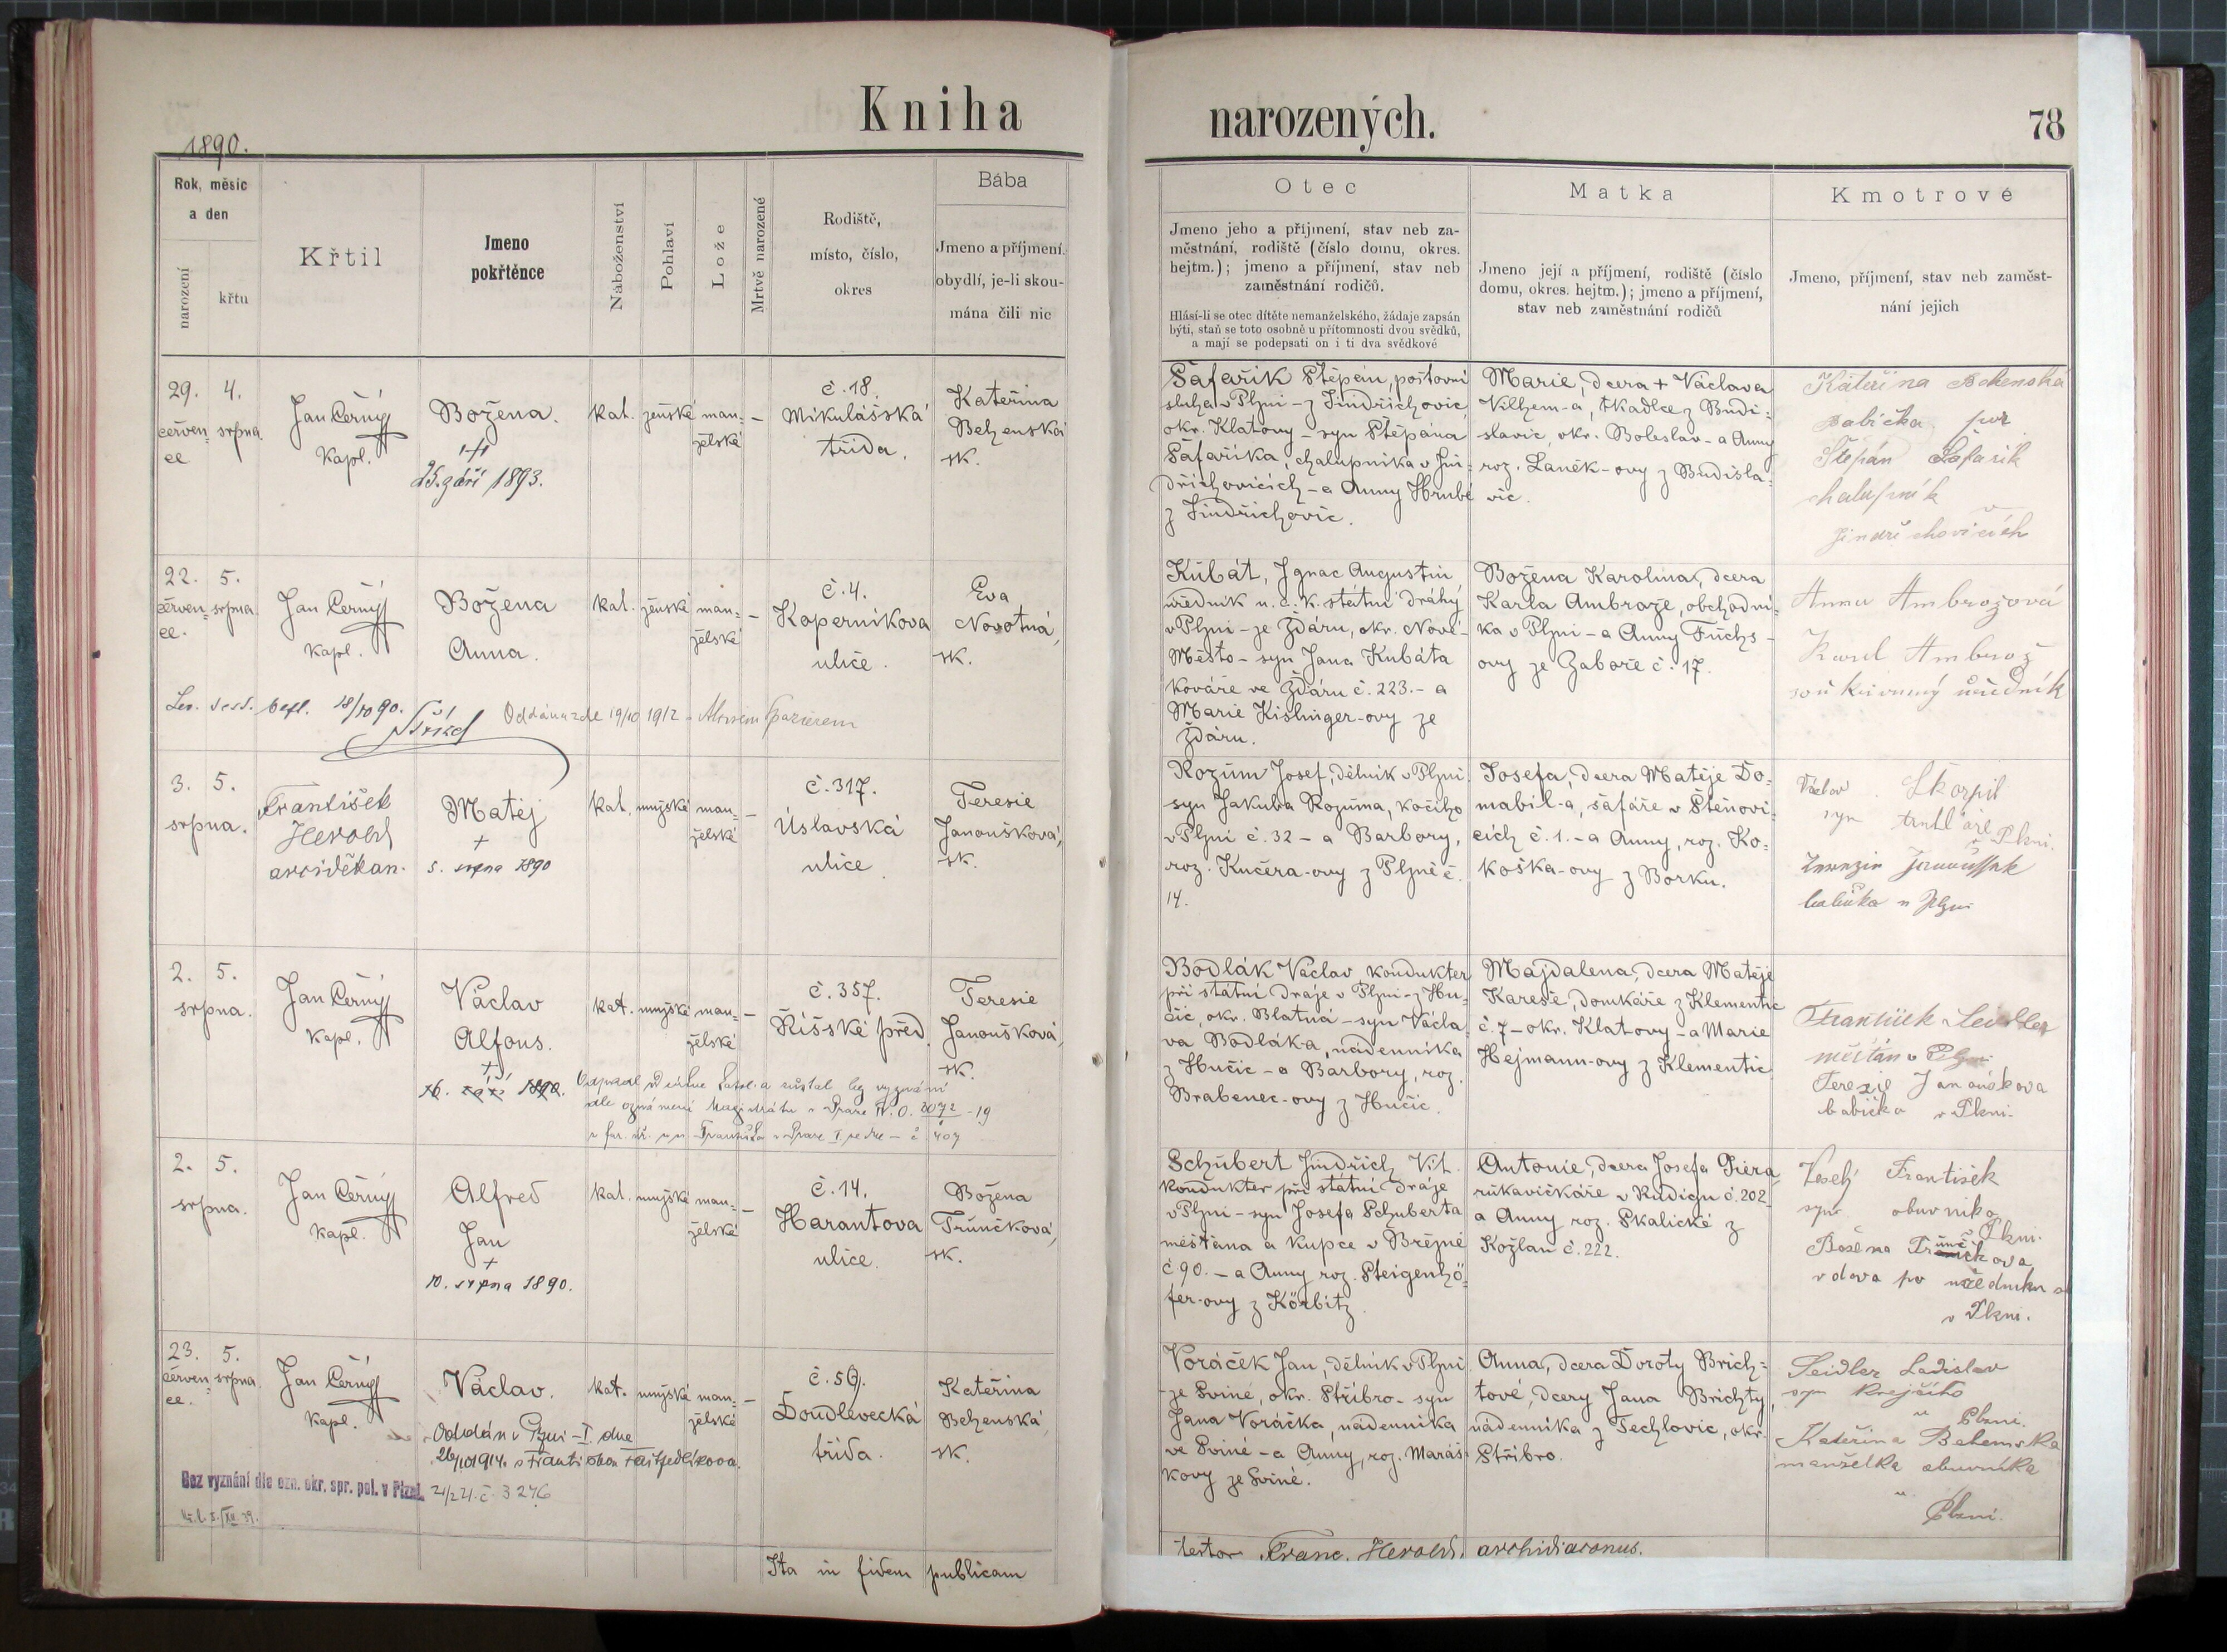 Kniha
narozených.
78
1890.
Rok, měsíc
a den
narození
křtu
Křtil
Jmeno
pokřtěnce
Náboženství
Pohlaví
Lože
Mrtvě narozené
Rodiště,
místo, číslo,
okres
Bába
Jmeno a příjmení.
obydlí, je-li skou-
mána čili nic
Otec
Jmeno jeho a příjmení, stav neb za-
městnání, rodiště (číslo domu, okres.
hejtm.); jmeno a příjmení, stav neb
zaměstnání rodičů.
Hlásí-li se otec dítěte nemanželského, žádaje zapsán
býti, staň se toto osobně u přítomnosti dvou svědků,
a mají se podepsati on i ti dva svědkové
Matka
Jmeno její a příjmení, rodiště (číslo
domu, okres. hejtm.); jmeno a příjmení,
stav neb zaměstnání rodičů
Kmotrové
Jmeno, příjmení, stav neb zaměst-
nání jejich
29.
červen-
ce
4.
srpna.
Jan Černý
kapl.
Božena.
25. září 1893.
kat.
ženské
man=
želské
–
č. 18.
Mikulášská
třída.
Kateřina
Behenská
sk.
Šafařik Štěpán, poštovní
sluha v Plzni – z Jindřichovic
okr. Klatovy – syn Štěpána
Šafaříka, chalupníka v Jin-
dřichovicích – a Anny Hrubé
z Jindřichovic.
Marie, dcera + Václava
Vilhem-a, tkadlce z Budi=
slavic, okr. Boleslav – a Anny
roz. Laněk-ovy z Budisla=
vic.
Kateřina Behenská
babička
Štěpán Šafařik
chalupník
Jindřichovicích
22.
červen-
ce.
5.
srpna.
Jan Černý
kapl.
Božena
Anna.
kat.
ženské
man=
želské
–
č. 4.
Koperníkova
ulice.
Eva
Novotná,
sk.
18/10 90.
Oddána zde 19/10 1912
Kubát, Ignac Augustin
úředník u. c. k. státní dráhy
v Plzni – ze Žďáru, okr. Nové-
Město – syn Jana Kubáta
kováře ve Žďáru č. 223. – a
Marie Kislinger-ovy ze
Žďáru.
Božena Karolina, dcera
Karla Ambrože, obchodní=
ka v Plzni – a Anny Fuchs-
ovy ze Zaboře č. 17.
Anna Ambrožová
Karel Ambrož
soukromný úředník
3.
srpna.
5.
František
Herold
arciděkan.
Matěj
+
5. srpna 1890
kat.
mužské
man=
želské
–
č. 317.
Úslavská
ulice.
Teresie
Janoušková,
sk.
Rozum Josef, dělník v Plzni
syn Jakuba Rozuma, kočího
v Plzni č. 32 – a Barbory,
roz. Kučera-ovy z Plzně č.
14.
Josefa, dcera Matěje Do=
mabil-a, šafáře v Štěnovi=
cích č. 1. – a Anny, roz. Ko=
koška-ovy z Borku.
Václav Škorpil
syn
Plzni.
babička v Plzni
2.
srpna.
5.
Jan Černý
kapl.
Václav
Alfons.
+
16. září 1890.
kat.
mužské
man=
želské
–
č. 357.
Říšské před.
Teresie
Janoušková,
sk.
dle oznámení Magistrátu v Praze
Bodlák Václav, kondukter
při státní dráze v Plzni – z Hu=
čic, okr. Blatná – syn Václa=
va Bodláka, nádenníka
z Hučic – a Barbory, roz.
Brabenec-ovy z Hučic.
Majdalena, dcera Matěje
Kareše, domkáře z Klementic
č. 7 – okr. Klatovy – a Marie
Hejmann-ovy z Klementic.
František Seidler
měšťan v Plzni
Terezie Janoušková
babička v Plzni.
2.
srpna.
5.
Jan Černý
kapl.
Alfred
Jan
+
10. srpna 1890.
kat.
mužské
man=
želské
–
č. 14.
Harantova
ulice.
Božena
Trunčková,
sk.
Schubert Jindřich Vit.
kondukter při státní dráze
v Plzni – syn Josefa Schuberta
měšťana a kupce v Březně
č. 90. – a Anny roz. Steigenhö=
fer-ovy z Körbitz.
Antonie, dcera Josefa Piera,
rukavičkáře v Rudigu č. 202
a Anny roz. Skalické z
Kožlan č. 222.
Veselý František
syn obuvníka
Plzni.
Božena Trunčkova
vdova po úředníku
v Plzni.
23.
červen=
ce.
5.
srpna.
Jan Černý
kapl.
Václav.
Oddán v Plzni – I. dne
kat.
mužské
man=
želské
–
č. 50.
Doudlevecká
třída.
Kateřina
Behenská,
sk.
Bez vyznání dle ozn. okr. spr. pol. v Plzni. 21/2 21. č. 3276
Voráček Jan, dělník v Plzni
– ze Sviné, okr. Stříbro – syn
Jana Voráčka, nádenníka
ve Sviné – a Anny, roz. Maráš=
kovy ze Sviné.
Anna, dcera Doroty Brich=
tové, dcery Jana Brichty,
nádenníka z Techlovic, okr.
Stříbro.
Seidler Ladislav
syn krejčího
Plzni.
Kateřina Behemská
manželka obuvníka
Plzni.
Ita in fidem publicam
testor Franc. Herold, archidiaconus.